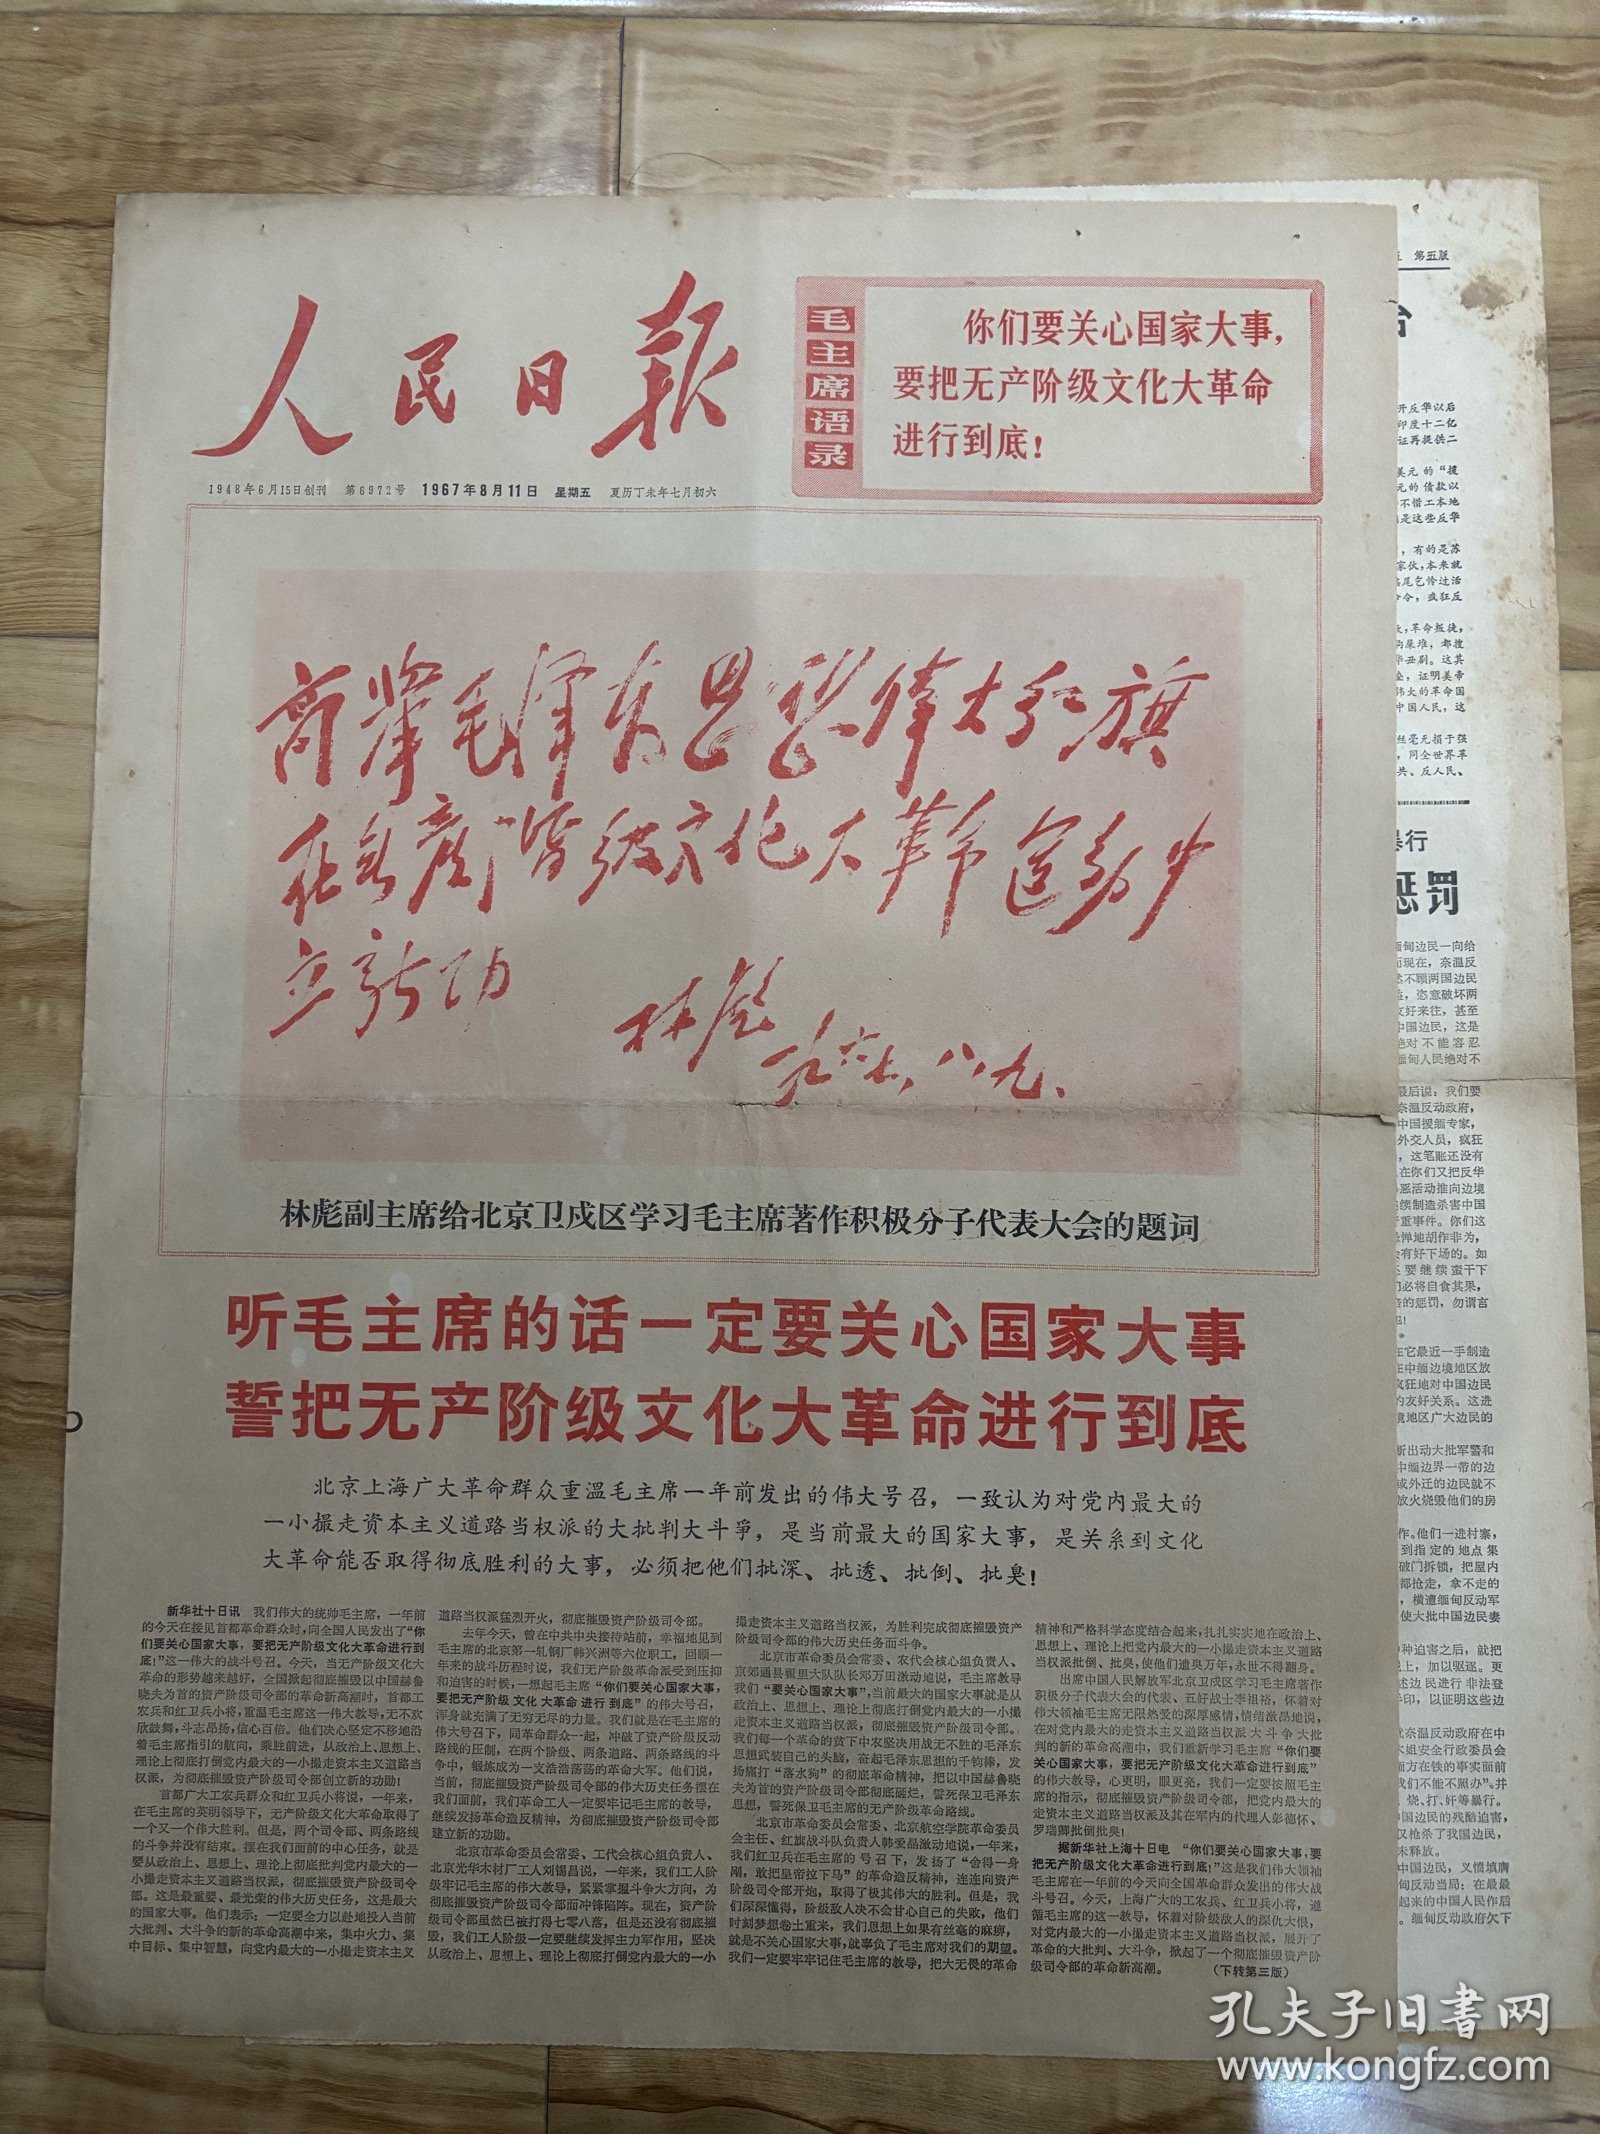 人民日报
1948年6月15日创刊 第6972号 1967年8月11日 星期五 夏历丁未年七月初六
毛主席语录
你们要关心国家大事，
要把无产阶级文化大革命
进行到底！
高举毛泽东思想伟大红旗
在无产阶级文化大革命运动中
立新功
林彪
一九六七，八九、
林彪副主席给北京卫戍区学习毛主席著作积极分子代表大会的题词
听毛主席的话一定要关心国家大事
誓把无产阶级文化大革命进行到底
北京上海广大革命群众重温毛主席一年前发出的伟大号召，一致认为对党内最大的
一小撮走资本主义道路当权派的大批判大斗争，是当前最大的国家大事，是关系到文化
大革命能否取得彻底胜利的大事，必须把他们批深、批透、批倒、批臭！
新华社十日讯 我们伟大的统帅毛主席，一年前
的今天在接见首都革命群众时，向全国人民发出了“你
们要关心国家大事，要把无产阶级文化大革命进行到
底！”这一伟大的战斗号召。今天，当无产阶级文化大
革命的形势越来越好，全国掀起彻底摧毁以中国赫鲁
晓夫为首的资产阶级司令部的革命新高潮时，首都工
农兵和红卫兵小将，重温毛主席这一伟大教导，无不欢
欣鼓舞，斗志昂扬，信心百倍。他们决心坚定不移地沿
着毛主席指引的航向，乘胜前进，从政治上、思想上、
理论上彻底打倒党内最大的一小撮走资本主义道路当
权派，为彻底摧毁资产阶级司令部创立新的功勋！
首都广大工农兵群众和红卫兵小将说，一年来，
在毛主席的英明领导下，无产阶级文化大革命取得了
一个又一个伟大胜利。但是，两个司令部、两条路线
的斗争并没有结束。摆在我们面前的中心任务，就是
要从政治上、思想上、理论上彻底批判党内最大的一
小撮走资本主义道路当权派，彻底摧毁资产阶级司令
部。这是最重要、最光荣的伟大历史任务，这是最大
的国家大事。他们表示：一定要全力以赴地投入当前
大批判、大斗争的新的革命高潮中来，集中火力、集
中目标、集中智慧，向党内最大的一小撮走资本主义
道路当权派猛烈开火，彻底摧毁资产阶级司令部。
去年今天，曾在中共中央接待站前，幸福地见到
毛主席的北京第一轧钢厂韩兴洲等六位职工，回顾一
年来的战斗历程时说，我们无产阶级革命派受到压抑
和迫害的时候，一想起毛主席“你们要关心国家大事，
要把无产阶级文化大革命进行到底”的伟大号召，
浑身就充满了无穷无尽的力量。我们就是在毛主席的
伟大号召下，同革命群众一起，冲破了资产阶级反动
路线的压制，在两个阶级、两条道路、两条路线的斗
争中，锻炼成为一支浩浩荡荡的革命大军。他们说，
当前，彻底摧毁资产阶级司令部的伟大历史任务摆在
我们面前，我们革命工人一定要牢记毛主席的教导，
继续发扬革命造反精神，为彻底摧毁资产阶级司令部
建立新的功勋。
北京市革命委员会常委、工代会核心组负责人、
北京光华木材厂工人刘锡昌说，一年来，我们工人阶
级牢记毛主席的伟大教导，紧紧掌握斗争大方向，为
彻底摧毁资产阶级司令部而冲锋陷阵。现在，资产阶
级司令部虽然已被打得七零八落，但是还没有彻底摧
毁，我们工人阶级一定要继续发挥主力军作用，坚决
从政治上、思想上、理论上彻底打倒党内最大的一小
撮走资本主义道路当权派，为胜利完成彻底摧毁资产
阶级司令部的伟大历史任务而斗争。
北京市革命委员会常委、农代会核心组负责人、
京郊通县翟里大队队长邓万田激动地说，毛主席教导
我们“要关心国家大事”，当前最大的国家大事就是从
政治上、思想上、理论上彻底打倒党内最大的一小撮
走资本主义道路当权派，彻底摧毁资产阶级司令部。
我们每一个革命的贫下中农坚决用战无不胜的毛泽东
思想武装自己的头脑，奋起毛泽东思想的千钧棒，发
扬痛打“落水狗”的彻底革命精神，把以中国赫鲁晓
夫为首的资产阶级司令部彻底砸烂，誓死保卫毛泽东
思想，誓死保卫毛主席的无产阶级革命路线。
北京市革命委员会常委、北京航空学院革命委员
会主任、红旗战斗队负责人韩爱晶激动地说，一年来，
我们红卫兵在毛主席的号召下，发扬了“舍得一身
剐，敢把皇帝拉下马”的革命造反精神，连连向资产
阶级司令部开炮，取得了极其伟大的胜利。但是，我
们深深懂得，阶级敌人决不会甘心自己的失败，他们
时刻梦想卷土重来，我们思想上如果有丝毫的麻痹，
就是不关心国家大事，就辜负了毛主席对我们的期望。
我们一定要牢牢记住毛主席的教导，把大无畏的革命
精神和严格科学态度结合起来，扎扎实实地在政治上、
思想上、理论上把党内最大的一小撮走资本主义道路
当权派批倒、批臭，使他们遗臭万年，永世不得翻身。
出席中国人民解放军北京卫戍区学习毛主席著作
积极分子代表大会的代表、五好战士李祖裕，怀着对
伟大领袖毛主席无限热爱的深厚感情，情绪激昂地说，
在对党内最大的走资本主义道路当权派大斗争大批
判的新的革命高潮中，我们重新学习毛主席“你们要
关心国家大事，要把无产阶级文化大革命进行到底”
的伟大教导，心更明，眼更亮，我们一定要按照毛主
席的指示，彻底摧毁资产阶级司令部，把党内最大的
走资本主义道路当权派及其在军内的代理人彭德怀、
罗瑞卿批倒批臭！
据新华社上海十日电 “你们要关心国家大事，要
把无产阶级文化大革命进行到底！”这是我们伟大领袖
毛主席在一年前的今天向全国革命群众发出的伟大战
斗号召。今天，上海广大的工农兵、红卫兵小将，遵
循毛主席的这一教导，怀着对阶级敌人的深仇大恨，
对党内最大的一小撮走资本主义道路当权派，展开了
革命的大批判、大斗争，掀起了一个彻底摧毁资产阶
级司令部的革命新高潮。 （下转第三版）
第五版
开反华以后
印度十二亿
证再提供二
美元的“援
元的债款以
不惜工本地
是这些反华
，有的是苏
家伙，本来就
尾乞怜过活
令，疯狂反
，革命叛徒，
狗屎堆，都搜
华丑剧。这其
，证明美帝
伟大的革命国
中国人民，这
丝毫无损于强
，同全世界革
共、反人民、
暴行
惩罚
缅甸边民一向给
而现在，奈温反
然不顾两国边民
，恣意破坏两
友好来往，甚至
中国边民，这是
绝对不能容忍
缅甸人民绝对不
最后说：我们要
奈温反动政府，
中国援缅专家，
外交人员，疯狂
，这笔账还没有
在你们又把反华
恶活动推向边境
继续制造杀害中国
重事件。你们这
惮地胡作非为，
会有好下场的。如
要继续蛮干下
们必将自食其果，
的惩罚，勿谓言
在它最近一手制造
在中缅边境地区放
疯狂地对中国边民
的友好关系。这进
境地区广大边民的
新出动大批军警和
中缅边界一带的边
或外迁的边民就不
放火烧毁他们的房
作。他们一进村寨，
到指定的地点集
破门拆锁，把屋内
都抢走，拿不走的
，横遭缅甸反动军
使大批中国边民妻
种迫害之后，就把
上，加以驱逐。更
述边民进行非法登
手印，以证明这些边
代奈温反动政府在中
木姐安全行政委员会
缅方在铁的事实面前
我们不能不照办”。并
烧、打、奸等暴行。
中国边民的残酷迫害，
又枪杀了我国边民，
未释放。
中国边民，义愤填膺
甸反动当局：在最最
起来的中国人民作后
缅甸反动政府欠下
孔夫子旧书网
www.kongfz.com